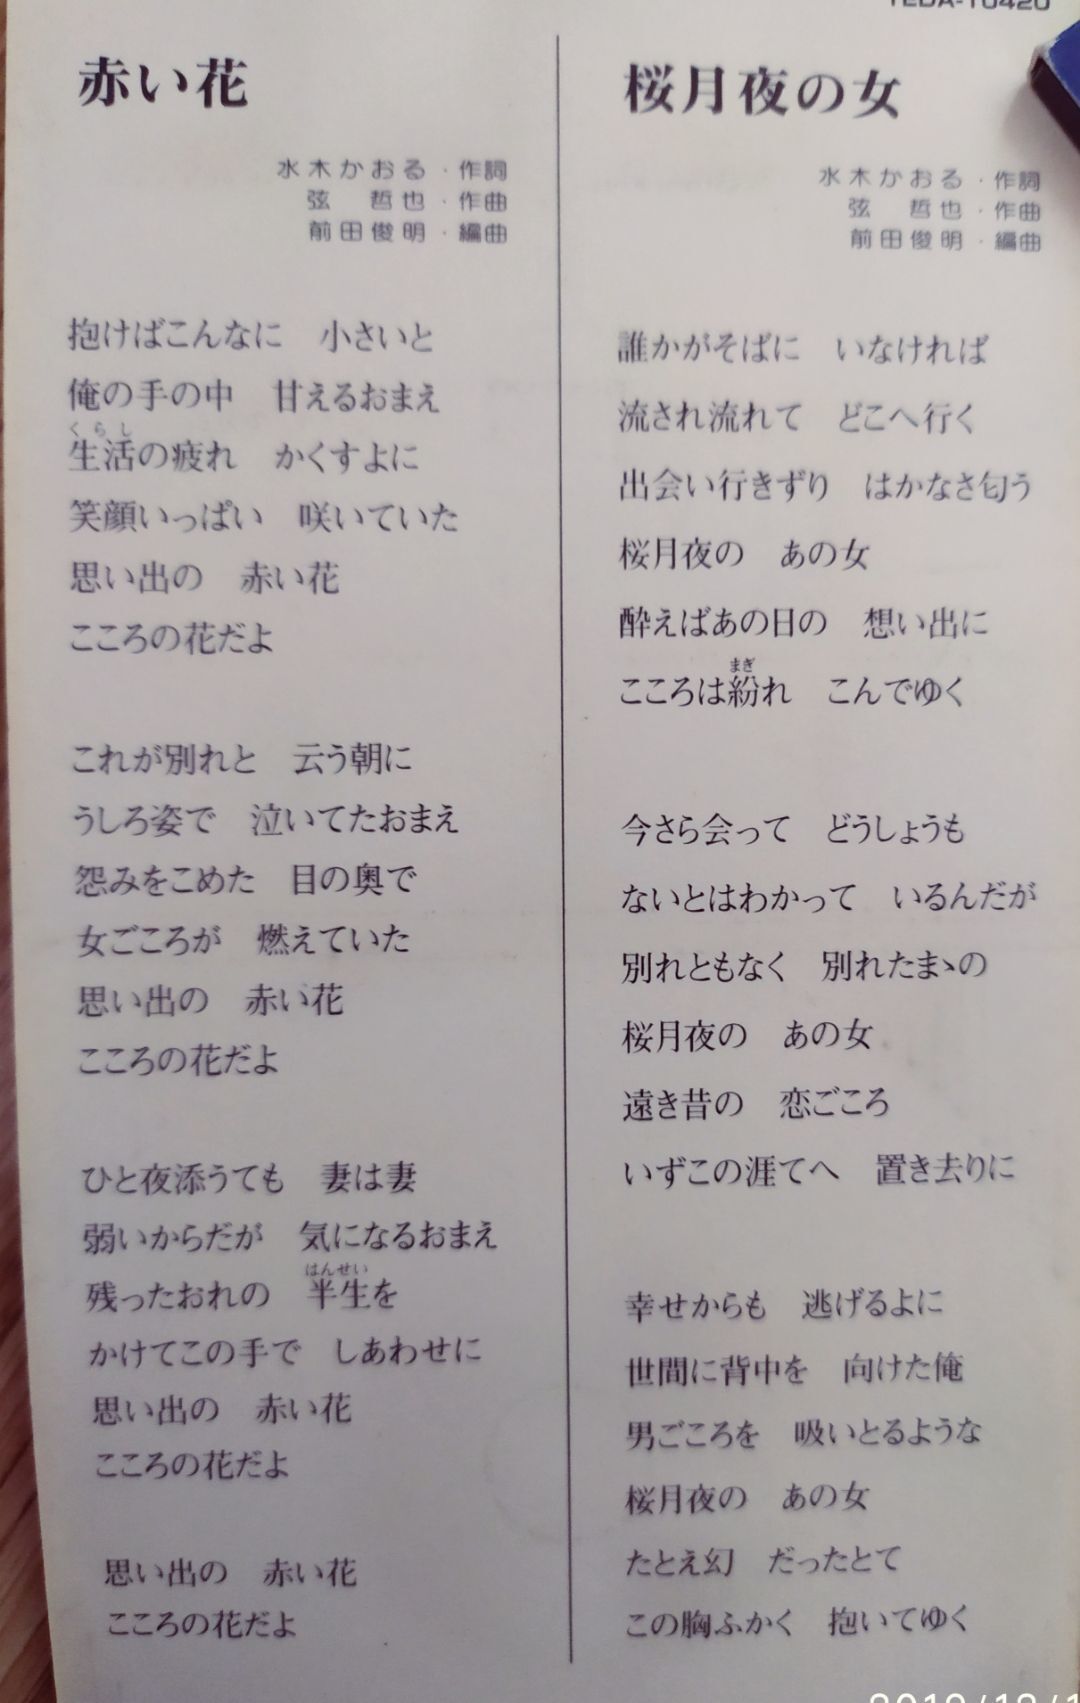 TEDA-10420
赤い花
水木かおる・作詞
弦　哲也・作曲
前田俊明・編曲
抱けばこんなに　小さいと
俺の手の中　甘えるおまえ
くらし
生活の疲れ　かくすよに
笑顔いっぱい　咲いていた
思い出の　赤い花
こころの花だよ
これが別れと　云う朝に
うしろ姿で　泣いてたおまえ
怨みをこめた　目の奥で
女ごころが　燃えていた
思い出の　赤い花
こころの花だよ
ひと夜添うても　妻は妻
弱いからだが　気になるおまえ
はんせい
残ったおれの　半生を
かけてこの手で　しあわせに
思い出の　赤い花
こころの花だよ
思い出の　赤い花
こころの花だよ
桜月夜の女
水木かおる・作詞
弦　哲也・作曲
前田俊明・編曲
誰かがそばに　いなければ
流され流れて　どこへ行く
出会い行きずり　はかなさ匂う
桜月夜の　あの女
酔えばあの日の　想い出に
まぎ
こころは紛れ　こんでゆく
今さら会って　どうしょうも
ないとはわかって　いるんだが
別れともなく　別れたまゝの
桜月夜の　あの女
遠き昔の　恋ごころ
いずこの涯てへ　置き去りに
幸せからも　逃げるよに
世間に背中を　向けた俺
男ごころを　吸いとるような
桜月夜の　あの女
たとえ幻　だったとて
この胸ふかく　抱いてゆく